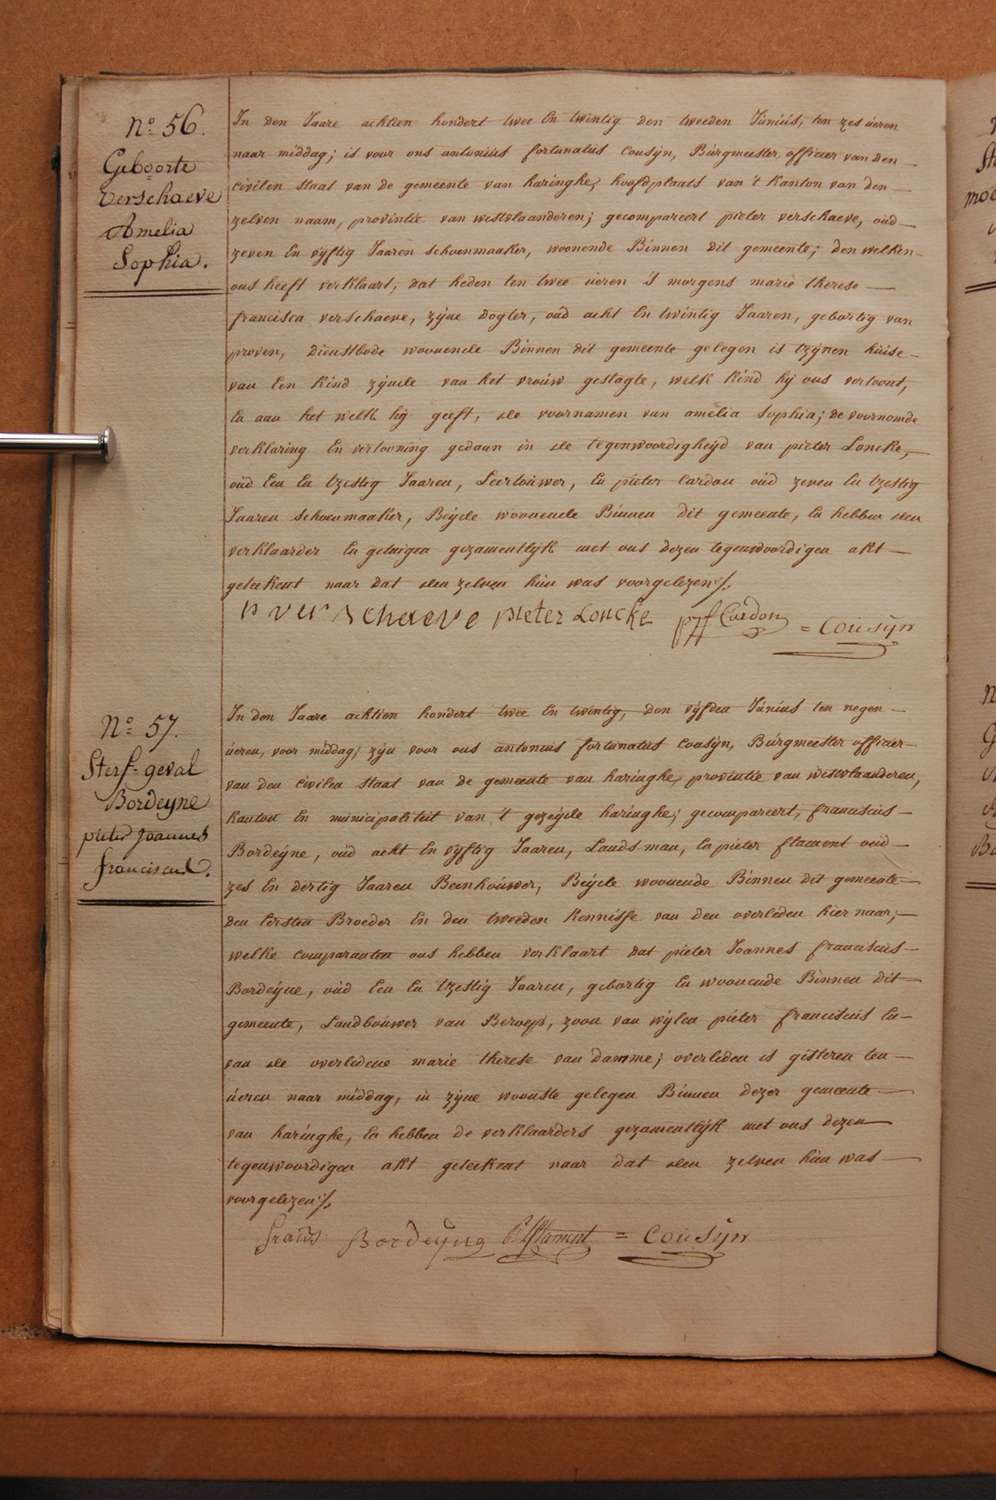 N.o 56.
Geboorte
Verschaeve
Amelia
Sophia.
In den Jaare achtien hondert twee en twintig den tweeden Junius, ten zes ueren
naar middag; is voor ons antonius fortunatus Cousÿn, Burgmeester officier van den
civilen staat van de gemeente van haringhe, hoofdplaats van 't kanton van den
zelven naam, provintie van westvlaanderen; gecompareert pieter verschaeve, oud
zeven en vÿftig Jaaren schoenmaaker, woonende Binnen dit gemeente; den welken
ons heeft verklaart, dat heden ten twee ueren 's morgens marie therese
francisca verschaeve, zÿne dogter, oud acht en twintig Jaaren, gebortig van
proven, dienstbode woonende Binnen dit gemeente gelegen is tzÿnen huise
van een kind zÿnde van het vrouw geslagte, welk kind hÿ ons vertoont,
en aan het welk hÿ geeft, de voornamen van amelia sophia; de voornomde
verklaring en vertooning gedaan in de tegenwoordigheÿd van pieter Loncke,
oud een en tzestig Jaaren, Leertouwer, en pieter Cardon oud zeven en tzestig
Jaaren schoenmaaker, Beÿde woonende Binnen dit gemeente, en hebben den
verklaarder en getuigen gezamentlÿk met ons dezen tegenwoordigen akt
geteekent naar dat den zelven hun was voorgelezen ./.
P verschaeve pieter Loncke Cardon = Cousÿn
N.o 57.
Sterf-geval
Bordeÿne
pieter Joannes
franciscus.
In den Jaare achtien hondert twee en twintig, den vÿfden Junius ten negen
ueren, voor middag; zÿn voor ons antonius fortunatus Cousÿn, Burgmeester officier
van den civilen staat van de gemeente van haringhe, provintie van westvlaanderen,
kanton en municipaliteit van 't gezeÿde haringhe; gecompareert, franciscus
Bordeÿne, oud acht en vÿftig Jaaren, Landsman, en pieter flament oud
zes en dertig Jaaren Beenhouwer, Beÿde woonende Binnen dit gemeente
den eersten Broeder en den tweeden kennisse van den overleden hier naar;
welke comparanten ons hebben verklaart dat pieter Joannes franciscus
Bordeÿne, oud een en tzestig Jaaren, gebortig en woonende Binnen dit
gemeente, Landbouwer van Beroep, zoon van wÿlen pieter franciscus en
van de overledene marie therese van damme; overleden is gisteren ten
ueren naar middag, in zÿne woonste gelegen Binnen dezer gemeente
van haringhe, en hebben de verklaarders gezamentlÿk met ons dezen
tegenwoordigen akt geteekent naar dat den zelven hun was
voorgelezen ./.
Bordeÿne Flament = Cousÿn